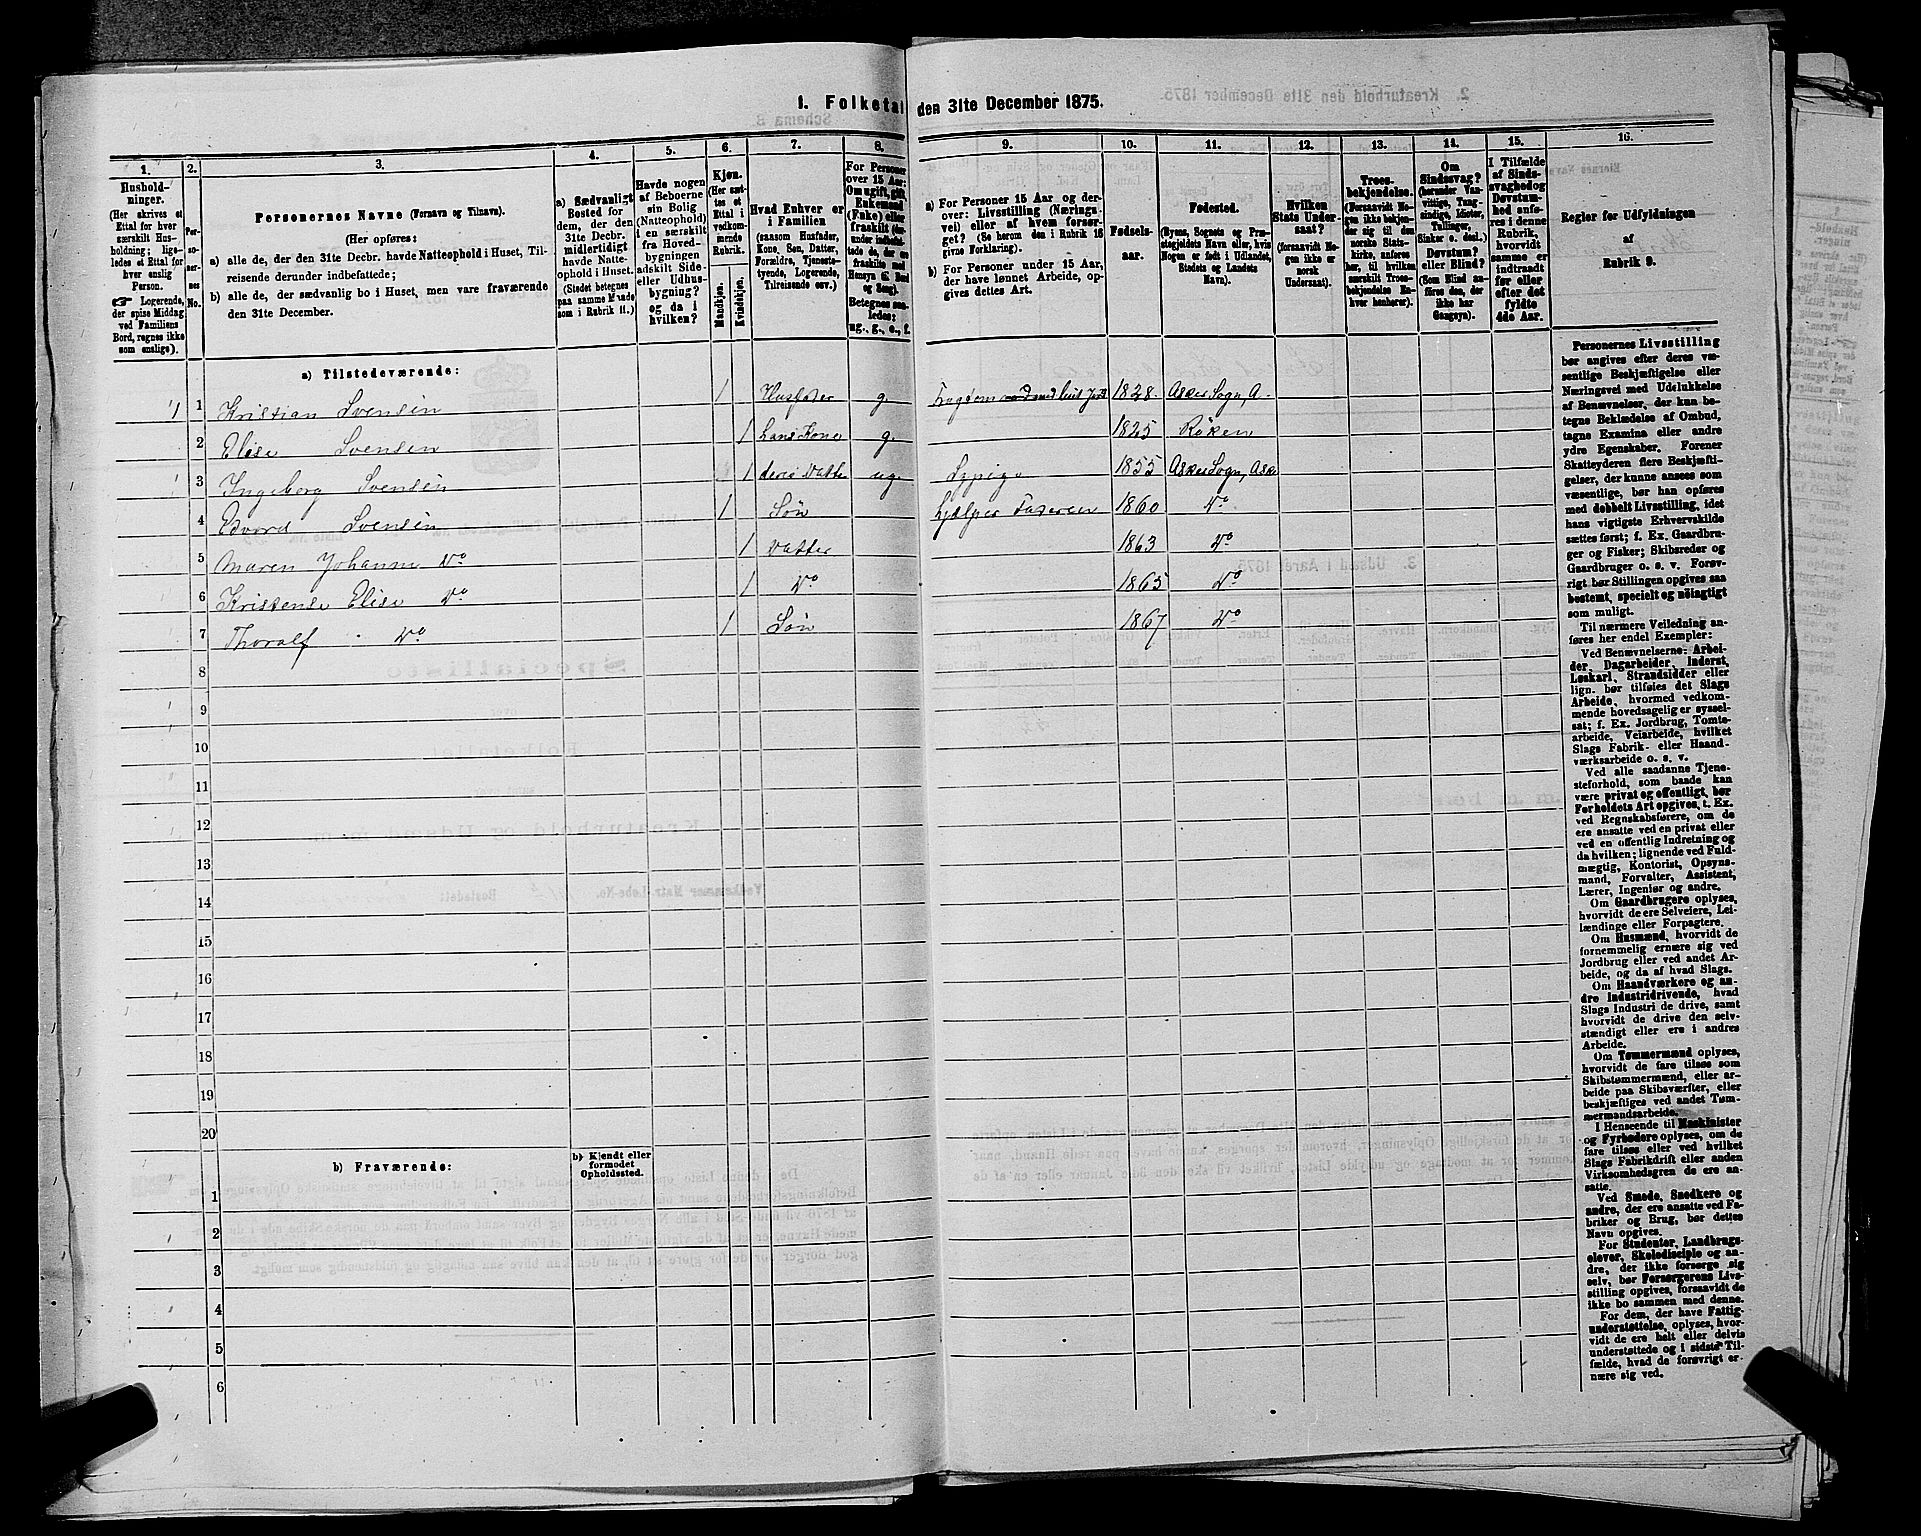 1. Folketal den 31te December 1875.
1. 2. 3. 4. 5. 6. 7. 8. 9. 10. 11. 12. 13. 14. 15. 16.
Hushold-
ninger.
(Her skrives et
Ettal for hver
særskilt Hus-
holdning; lige-
ledes et Ettal for
hver enslig
Person.
☞ Logerende,
der spise Middag
ved Familiens
Bord, regnes ikke
som enslige).
Per-
so-
ner-
nes
No.
Personernes Navne (Fornavn og Tilnavn).
(Her opføres:
a) alle de, der den 31te Decbr. havde Natteophold i Huset, Til-
reisende derunder indbefattede;
b) alle de, der sædvanlig bo i Huset, men vare fraværende
den 31te December.
a) Sædvanligt
Bosted for
dem, der den
31te Decbr.
midlertidigt
havde Natte-
ophold i Huset.
(Stedet betegnes
paa samme Maade
som i Rubrik 11.)
Havde nogen
af Beboerne
sin Bolig
(Natteophold)
i en særskilt
fra Hoved-
bygningen
adskilt Side-
eller Udhus-
bygning?
og da i
hvilken?
Kjøn.
(Her sæt-
tes et
Ettal i
vedkom-
mende
Rubrik.
Mandkjøn.
Kvindekjøn.
Hvad Enhver er
i Familien
(saasom Husfader,
Kone, Søn, Datter,
Forældre, Tjeneste-
tyende, Logerende,
Tilreisende osv.)
For Personer
over 15 Aar:
Om ugift, gift,
Enkemand
(Enke) eller
fraskilt
Betegnes saa-
ledes:
ug., g., e., f.
a) For Personer 15 Aar og der-
over: Livsstilling (Nærings-
vei) eller af hvem forsør-
get? (Se herom den i Rubrik 16
givne Forklaring).
b) For Personer under 15 Aar,
der have lønnet Arbeide, op-
gives dettes Art.
Fødsels-
aar.
Fødested.
(Byens, Sognets og Præ-
stegjeldets Navn eller, hvis
Nogen er født i Udlandet,
Stedets og Landets
Navn).
Hvilken
Stats Under-
saat?
(forsaavidt No-
gen ikke er
norsk
Undersaat).
Troes-
bekjendelse.
(Forsaavidt No-
gen ikke bekjen-
der sig til den
norske Stats-
kirke, anføres
her, til hvilken
særskilt Troes-
bekjendelse En-
hver henhører).
Om
Sindssvag?
(herunder Van-
vittige, Tung-
sindige, Idioter,
Tullinger,
Sinker o. desl.)
Døvstum?
eller Blind?
(Som Blind an-
føres den, der
ikke har
Gangsyn).
I Tilfælde
af Sinds-
svaghed og
Døvstum-
hed anfø-
res i denne
Rubrik,
hvorvidt
samme er
indtraadt
før eller
efter det
fyldte
4de Aar.
Regler for Udfyldningen
af
Rubrik 9.
a) Tilstedeværende:
1 1 Kristian Svensen 1 Husfader g. 1828. Asker Sogn, A.
2 Elise Svensen 1 hans Kone g. 1825 Røken
3 Ingeborg Svensen 1 deres Datter ug. 1855 Asker Sogn, Aske
4 Edvard Svensen 1 Søn hjælper Faderen 1860 Do
5 Maren Johanne Do 1 Datter 1863 Do
6 Kristense Elise Do 1 Do 1865 Do
7 Thoralf Do 1 Søn 1867 Do
8
9
10
11
12
13
14
15
16
17
18
19
20
b) Fraværende:
b) Kjendt eller
formodet
Opholdssted.
1
2
3
4
5
6
Personernes Livsstilling
bør angives efter deres væ-
sentlige Beskjæftigelse eller
Næringsvei med Udelukkelse
af Benævnelser, der kun be-
tegne Beklædelse af Ombud,
tagne Examina eller andre
ydre Egenskaber. Forener
Skatteyderen flere Beskjæfti-
gelser, der kunne ansees som
væsentlige, bør han opføres
med dobbelt Livsstilling, idet
hans vigtigste Erhvervskilde
sættes først; f. Ex. Gaardbru-
ger og Fisker; Skibsreder og
Gaardbruger o. s. v. Forøv-
rigt bør Stillingen opgives saa
bestemt, specielt og nøiagtigt
som muligt.
Til nærmere Veiledning an-
føres her endel Exempler:
Ved Benævnelserne: Arbei-
der, Dagarbeider, Inderst,
Løskarl, Strandsidder eller
lign. bør tilføies det Slags
Arbeide, hvormed vedkom-
mende hovedsagelig er syssel-
sat; f. Ex. Jordbrug, Tomte-
arbeide, Veiarbeide, hvilket
Slags Fabrik- eller Haand-
værksarbeide o. s. v.
Ved alle saadanne Tjene-
steforhold, som baade kan
være privat og offentligt, bør
Forholdets Art opgives, t. Ex.
ved Regnskabsførere, om de
ere ansatte ved en privat eller
ved en offentlig Indretning og
da hvilken; lignende ved Fuld-
mægtig, Kontorist, Opsyns-
mand, Forvalter, Assistent,
Lærer, Ingeniør og andre.
Om Gaardbrugere oplyses,
hvorvidt de ere Selveiere, Lei-
lændinge eller Forpagtere.
Om Husmænd, hvorvidt de
fornemmelig ernære sig ved
Jordbrug eller ved andet Ar-
beide, og da af hvad Slags.
Om Haandværkere og an-
dre Industridrivende, hvad
Slags Industri de drive, samt
hvorvidt de drive den selv-
stændigt eller ere i andres
Arbeide.
Om Tømmermænd oplyses,
hvorvidt de fare tilsøs som
Skibstømmermænd, eller ar-
beide paa Skibsværfter, eller
beskjæftiges ved andet Tøm-
mermandsarbeide.
I Henseende til Maskinister
og Fyrbødere oplyses, om de
fare tilsøs eller ved hvilket
Slags Fabrikdrift eller anden
Virksomhedsgren de ere an-
satte.
Ved Smede, Snedkere og
andre, der ere ansatte ved Fa-
briker og Brug, bør dettes
Navn opgives.
For Studenter, Landbrugs-
elever, Skoledisciple og an-
dre, der ikke forsørge sig
selv, bør Forsørgerens Livs-
stilling opgives, forsaavidt de
ikke bo sammen med denne.
For dem, der have Fattig-
understøttelse, oplyses, hvor-
vidt de ere helt eller delvis
understøttede og i sidste Til-
fælde, hvad de forøvrigt er-
nære sig ved.